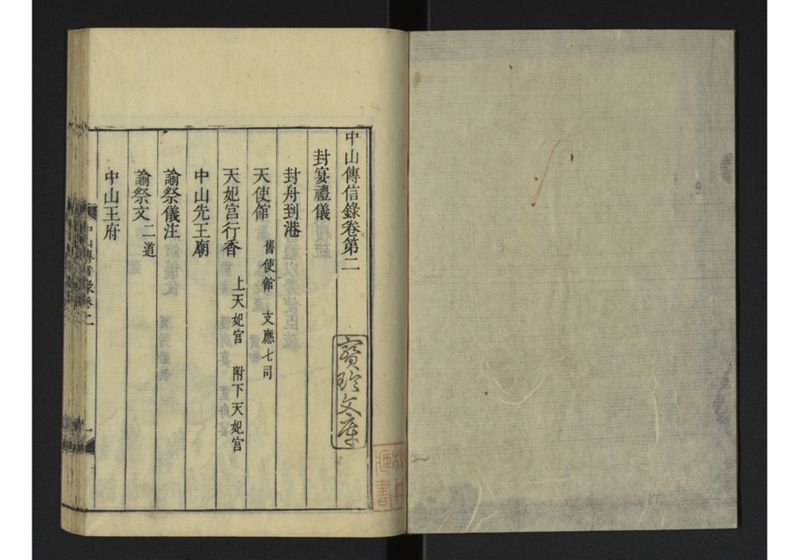 中山傳信錄卷第二
封宴禮儀
封舟到港
天使館 舊使館 支應七司
天妃宮行香 上天妃宮 附下天妃宮
中山先王廟
諭祭儀注
諭祭文 二道
中山王府
寶玲文庫